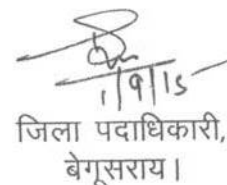 1/9/15
जिला पदाधिकारी,
बेगूसराय।